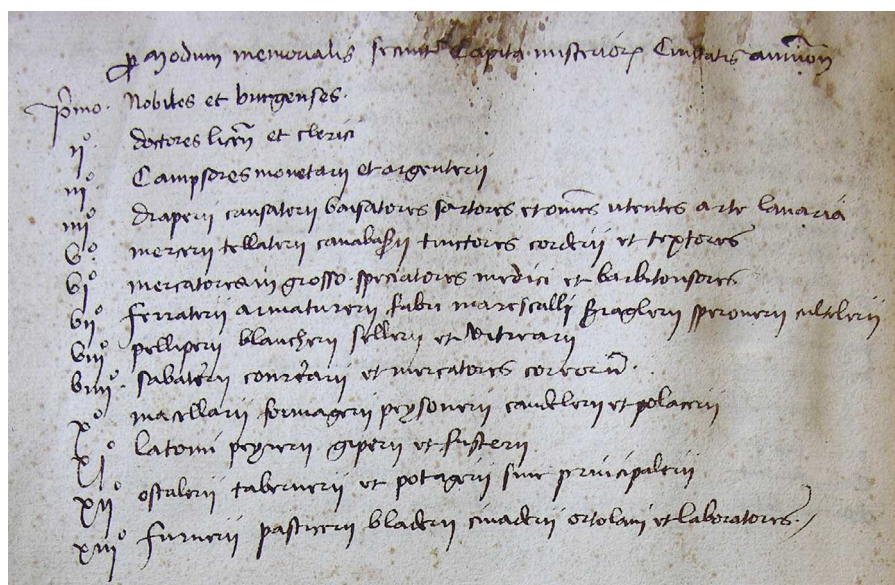 ꝑ modum memorialis secuntur Capita misteriorꝝ Civitatis avinion
pͥmo. Nobiles et burgenses.
ijº doctores licen et clerici
iijº Campsores monetarij et argenterij
iiijº draperij caussaterij baisatores sartores et omes utentes arte lanaria
vº mercerij tellaterij canabasserij tinctores corderij et textores
viº mercatores in grosso speciatores medici et barbitonsores
vijº ferraterij armaturerij fabri marescalli speronerij cultelerij
viijº pelliperij blancherij sellerij et vitrearij
viiijº sabaterij correarij et mercatores coreorum.
xº macellarij formagerij peysonerij candelerij et polaterij
xjº latomi peyrerij giperij et fusterij
xijº ostalerij tabernerij et potagerij sive principalerij
xiijº furnerij pasticerij bladerij civaderij ortolani et laboratores.